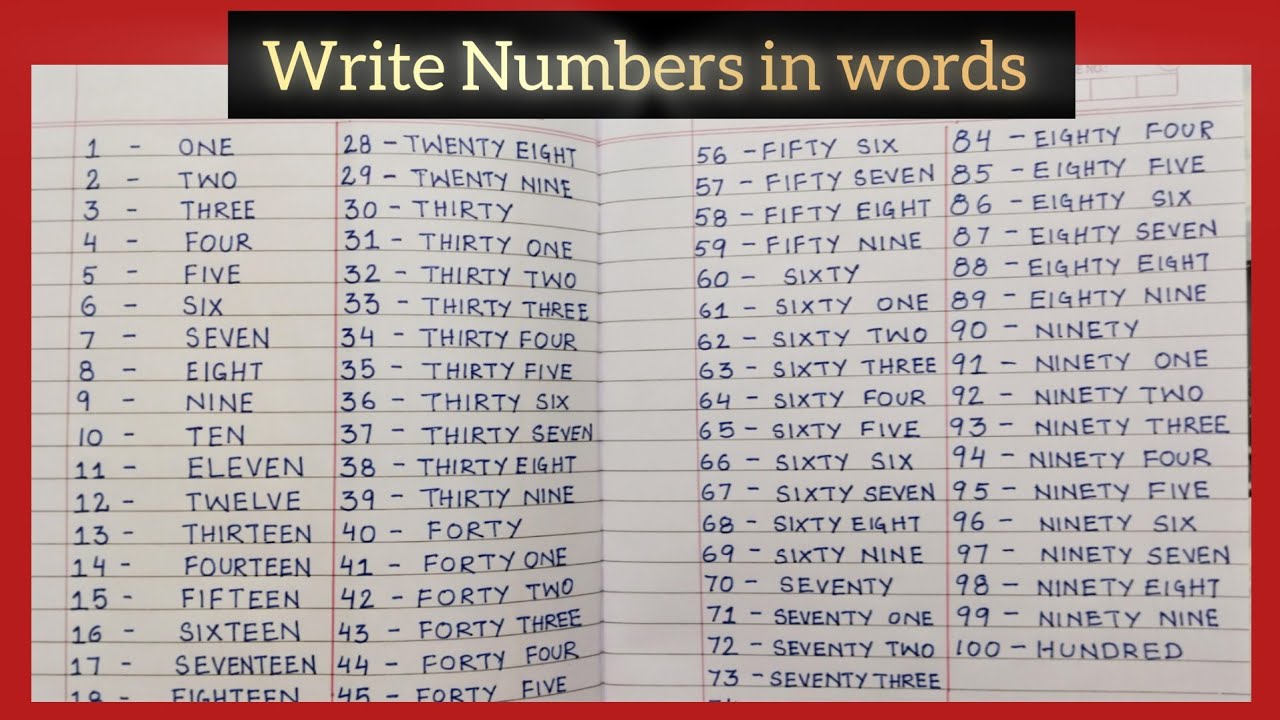 Write Numbers in words
1 - ONE
2 - TWO
3 - THREE
4 - FOUR
5 - FIVE
6 - SIX
7 - SEVEN
8 - EIGHT
9 - NINE
10 - TEN
11 - ELEVEN
12 - TWELVE
13 - THIRTEEN
14 - FOURTEEN
15 - FIFTEEN
16 - SIXTEEN
17 - SEVENTEEN
18 - EIGHTEEN
28 - TWENTY EIGHT
29 - TWENTY NINE
30 - THIRTY
31 - THIRTY ONE
32 - THIRTY TWO
33 - THIRTY THREE
34 - THIRTY FOUR
35 - THIRTY FIVE
36 - THIRTY SIX
37 - THIRTY SEVEN
38 - THIRTY EIGHT
39 - THIRTY NINE
40 - FORTY
41 - FORTY ONE
42 - FORTY TWO
43 - FORTY THREE
44 - FORTY FOUR
45 - FORTY FIVE
56 - FIFTY SIX
57 - FIFTY SEVEN
58 - FIFTY EIGHT
59 - FIFTY NINE
60 - SIXTY
61 - SIXTY ONE
62 - SIXTY TWO
63 - SIXTY THREE
64 - SIXTY FOUR
65 - SIXTY FIVE
66 - SIXTY SIX
67 - SIXTY SEVEN
68 - SIXTY EIGHT
69 - SIXTY NINE
70 - SEVENTY
71 - SEVENTY ONE
72 - SEVENTY TWO
73 - SEVENTY THREE
84 - EIGHTY FOUR
85 - EIGHTY FIVE
86 - EIGHTY SIX
87 - EIGHTY SEVEN
88 - EIGHTY EIGHT
89 - EIGHTY NINE
90 - NINETY
91 - NINETY ONE
92 - NINETY TWO
93 - NINETY THREE
94 - NINETY FOUR
95 - NINETY FIVE
96 - NINETY SIX
97 - NINETY SEVEN
98 - NINETY EIGHT
99 - NINETY NINE
100 - HUNDRED